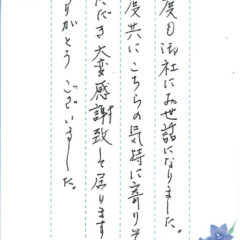 度も御社にお世話になりました。
度共にこちらの気持に寄り
ただき大変感謝致して居ります
りがとうございました。